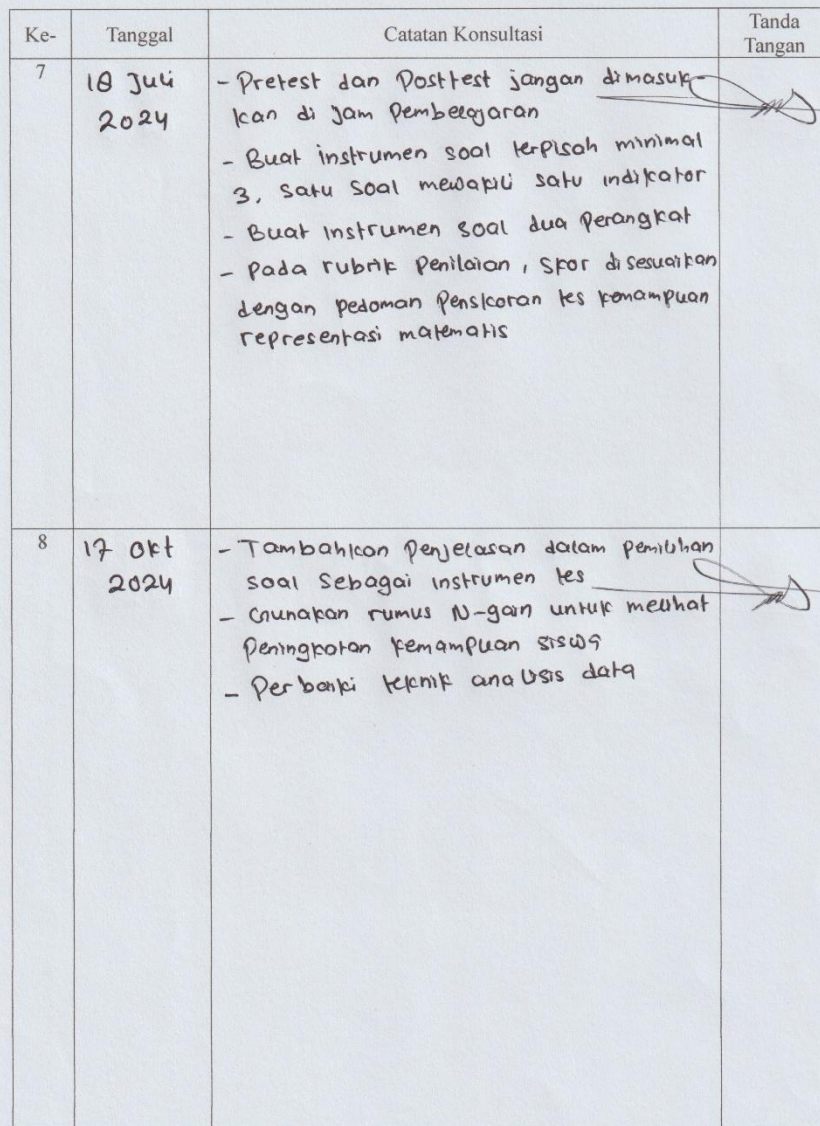 Ke- Tanggal Catatan Konsultasi Tanda Tangan
7
18 Juli
2024
- Pretest dan Posttest jangan dimasuk-
kan di jam Pembelajaran
- Buat instrumen soal terpisah minimal
3, satu soal mewakili satu indikator
- Buat instrumen soal dua Perangkat
- Pada rubrik Penilaian, skor disesuaikan
dengan pedoman Penskoran tes kemampuan
representasi matematis
8
17 Okt
2024
- Tambahkan Penjelasan dalam pemilihan
soal sebagai instrumen tes
- Gunakan rumus N-gain untuk melihat
Peningkatan kemampuan siswa
- Perbaiki teknik analisis data